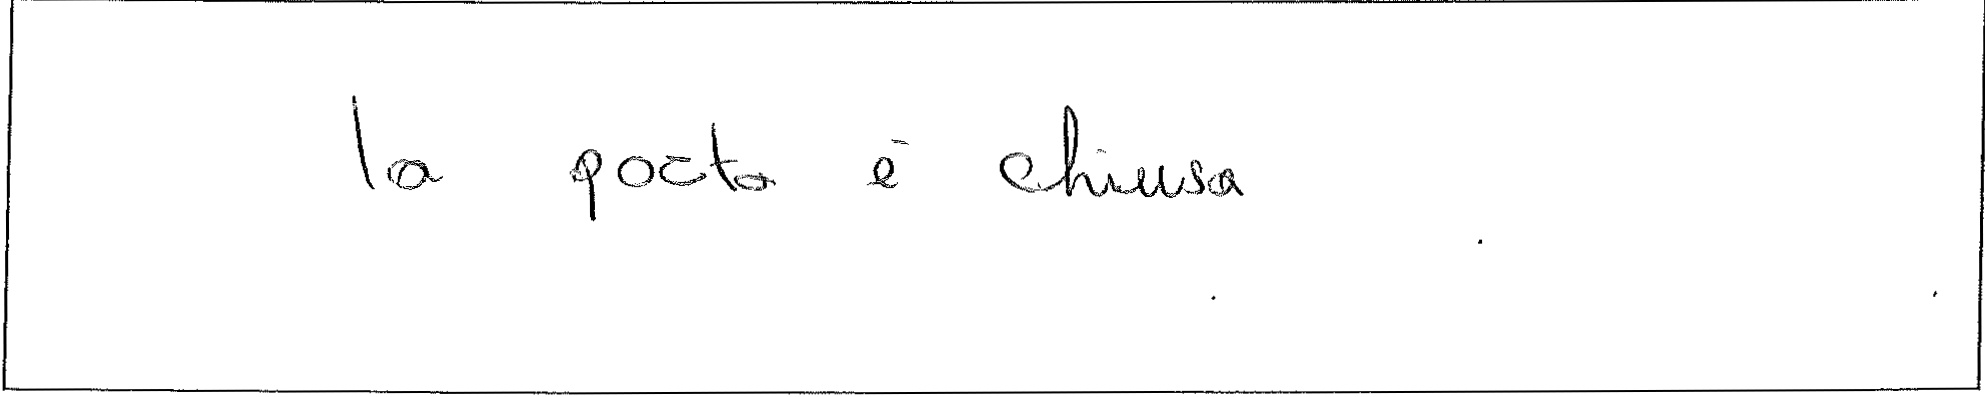 la porta è chiusa